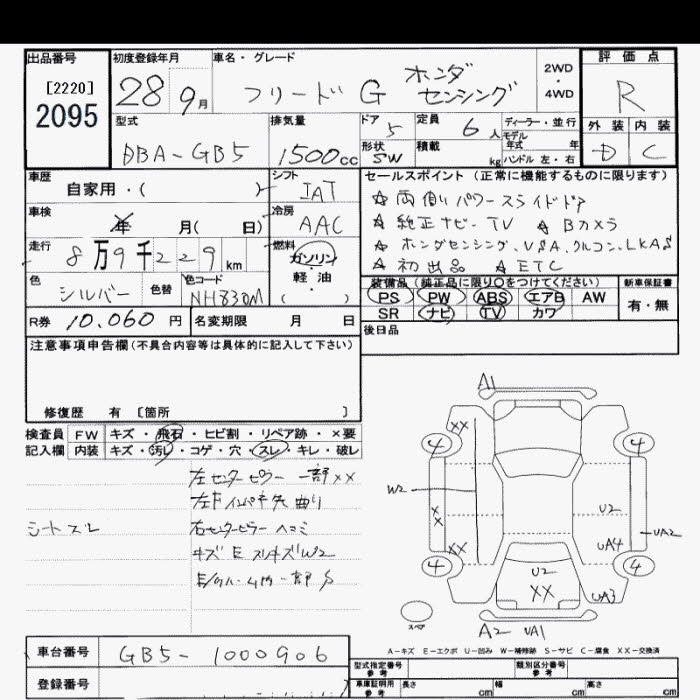 出品番号
[2220]
2095
初度登録年月
28 9月
車名・グレード
フリード G ホンダ
センシング
2WD
・
4WD
評価点
R
外装 内装
D C
型式
DBA-GB5
排気量
1500cc
ドア
5
形状
SW
定員
6 人
積載
kg
ディーラー・並行
モデル
年式 年
ハンドル 左・右
車歴
自家用・( )
シフト
IAT
車検
年 月( 日)
冷房
AAC
走行
8万9千229km
燃料
ガソリン
・
軽・油
( )
色
シルバー
色替
色コード
NH830M
R券 10.060 円
名変期限 月 日
セールスポイント(正常に機能するものに限ります)
☆両側パワースライドドア
☆純正ナビ・TV ☆Bカメラ
☆ホンダセンシング、VSA、クルコン、LKAS
☆初出品 ☆ETC
装備品(純正品に限り○をつけてください)
PS PW ABS エアB AW
SR ナビ TV カワ
新車保証書
有・無
後日品
注意事項申告欄(不具合内容等は具体的に記入して下さい)
修復歴 有 [箇所 ]
検査員
記入欄
FW キズ・飛石・ヒビ割・リペア跡・×要
内装 キズ・汚レ・コゲ・穴・スレ・キレ・破レ
左センターピラー 一部××
左F インパネ先 曲り
シートスレ
右センターピラー ヘコミ
キズ E スリキズW2
A1
XX
4
4
W2
X
X
U2
UA2
XX
UA4
4
4
U2
XX
UA3
スペア
A2 UA1
A-キズ E-エクボ U-凹み W-補修跡 S-サビ C-腐食 XX-交換済
車台番号 GB5-1000906
登録番号
型式指定番号
参考
類別区分番号
参考
車庫証明用
参考
長さ cm
幅 cm
高さ cm